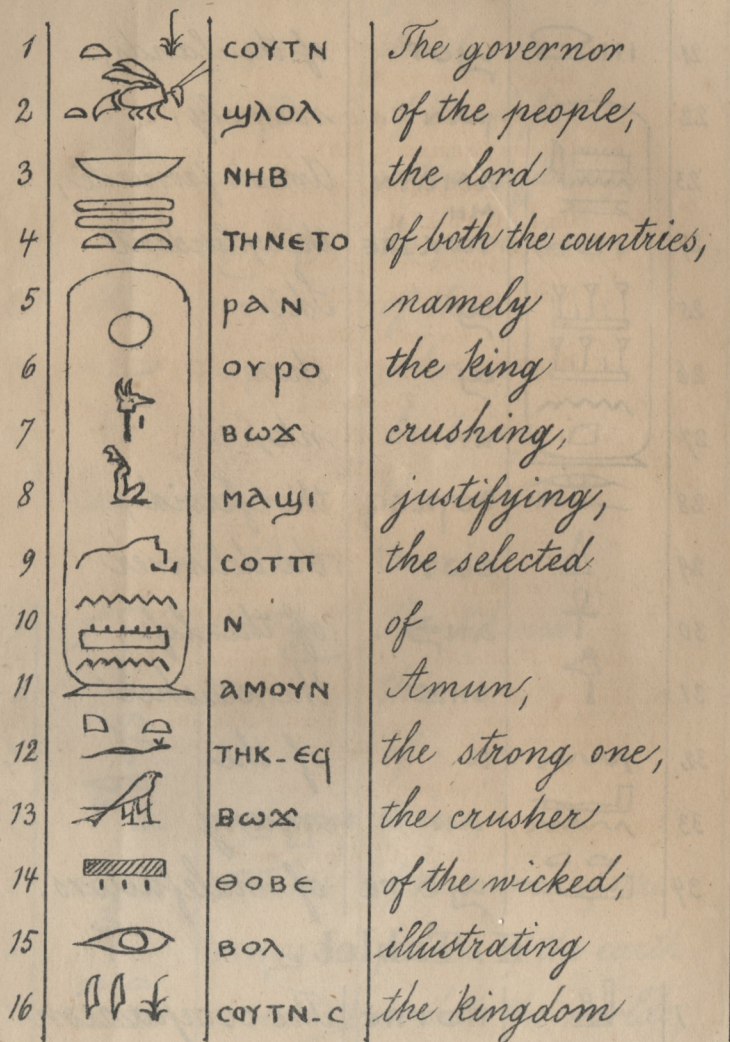 1 ⲤⲞⲨⲦⲚ The governor
2 ϢⲖⲞⲖ of the people,
3 ⲚⲎⲂ the lord
4 ⲦⲎⲚⲈⲦⲞ of both the countries,
5 ⲢⲀⲚ namely
6 ⲞⲨⲢⲞ the king
7 ⲂⲰϪ crushing,
8 ⲘⲀϢⲒ justifying,
9 ⲤⲞⲦⲠ the selected
10 Ⲛ of
11 ⲀⲘⲞⲨⲚ Amun,
12 ⲦⲎⲔ-ⲈϤ the strong one,
13 ⲂⲰϪ the crusher
14 ⲐⲞⲂⲈ of the wicked,
15 ⲂⲞⲖ illustrating
16 ⲤⲞⲨⲦⲚ-Ⲥ the kingdom